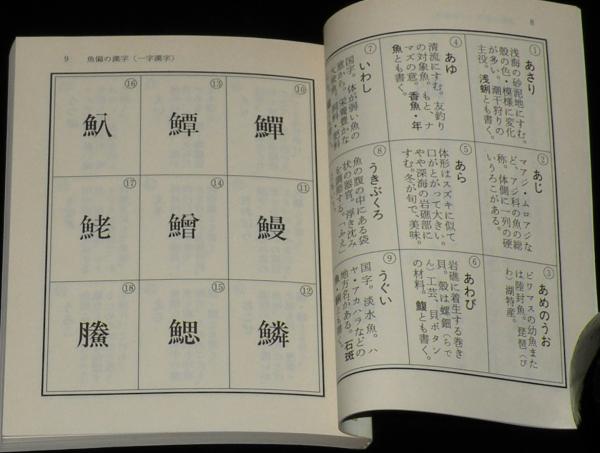 8
①あさり
浅海の砂泥地にすむ。
殻の色・模様に変化
が多い。潮干狩りの
主役。浅蜊とも書く。
②あじ
マアジ・ムロアジな
ど、アジ科の魚の総
称。体側に一列の硬
いうろこがある。
③あめのうお
ビワマスの幼魚また
は陸封魚。琵琶（び
わ）湖特産。
④あゆ
清流にすむ。友釣り
の対象魚。もと、ナ
マズの意。香魚・年
魚とも書く。
⑤あら
体形はスズキに似て
口がとがって大きい。
やや深海の岩礁部に
すむ。冬が旬で、美味。
⑥あわび
岩礁に着生する巻き
貝。殻は螺鈿（らで
ん）工芸、貝ボタン
の材料。鰒とも書く。
⑦いわし
国字。体が弱い魚の
意から。栄養豊かな
⑧うきぶくろ
魚の腹の中にある袋
状の器官。浮き沈み
を調節する。
⑨うぐい
国字。淡水魚。ハ
ヤ・アカハラなどの
地方名がある。石斑
9 魚偏の漢字（一字漢字）
⑩
鱓
⑪
鰻
⑫
鱗
⑬
鱏
⑭
鱛
⑮
鰓
⑯
魞
⑰
鮱
⑱
鰧